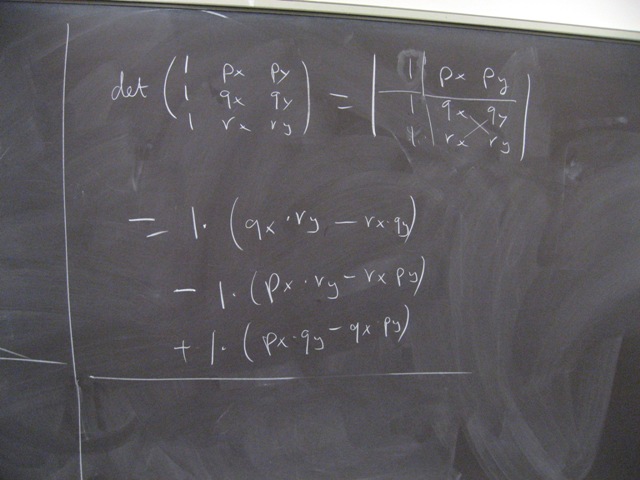 det ( 1 px py ) = | 1 px py |
1 qx qy 1 qx qy
1 rx ry 1 rx ry
= 1 · (qx · ry − rx · qy)
− 1 · (px · ry − rx py)
+ 1 · (px · qy − qx · py)